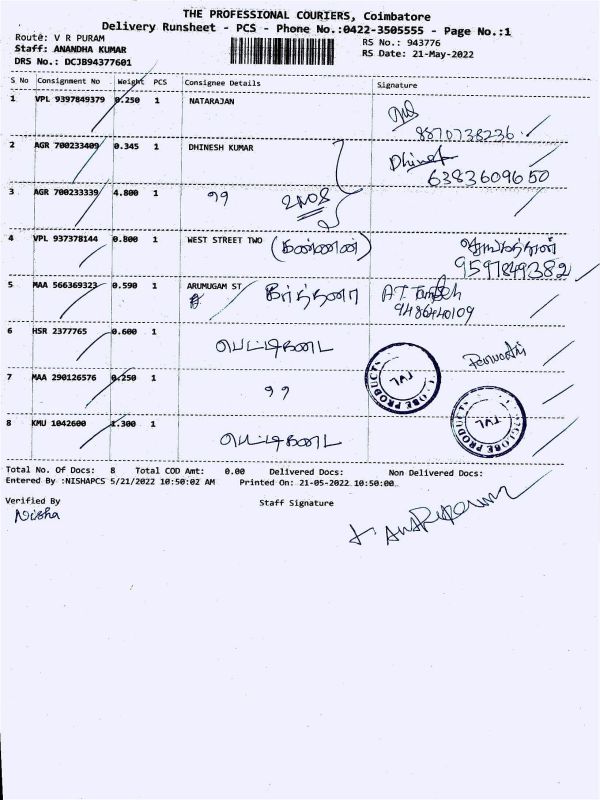 THE PROFESSIONAL COURIERS, Coimbatore
Delivery Runsheet - PCS - Phone No.:0422-3505555 - Page No.:1
Route: V R PURAM
RS No.: 943776
Staff: ANANDHA KUMAR
RS Date: 21-May-2022
DRS No.: DCJB94377601
S No Consignment No Weight PCS Consignee Details Signature
1 VPL 9397849379 0.250 1 NATARAJAN
8870738236
2 AGR 700233409 0.345 1 DHINESH KUMAR
6383609650
3 AGR 700233339 4.800 1 99
4 VPL 937378144 0.800 1 WEST STREET TWO
9597849382
5 MAA 566369323 0.590 1 ARUMUGAM ST
9486440109
6 HSR 2377765 0.600 1 பெட்டிகடை
7 MAA 290126576 0.250 1 99
GLOBE PRODUCTS TVL
8 KMU 1042600 1.300 1 பெட்டிகடை
GLOBE PRODUCTS TVL
Total No. Of Docs: 8 Total COD Amt: 0.00 Delivered Docs: Non Delivered Docs:
Entered By :NISHAPCS 5/21/2022 10:50:02 AM Printed On: 21-05-2022 10:50:00
Verified By Staff Signature
Nisha